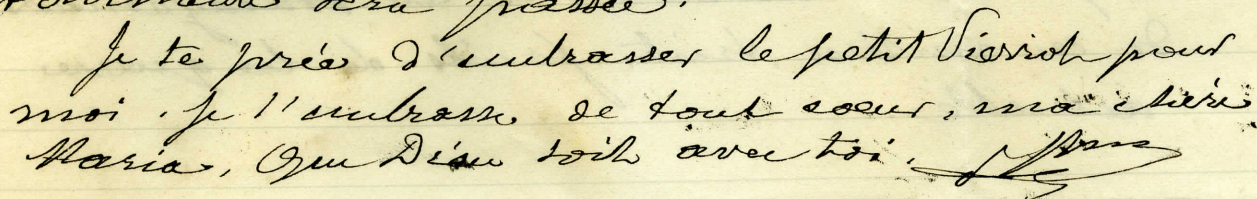 sera passée.
Je te prie d'embrasser le petit Pierrot pour
moi. Je t'embrasse de tout coeur, ma chérie
Maria, Que Dieu soit avec toi.